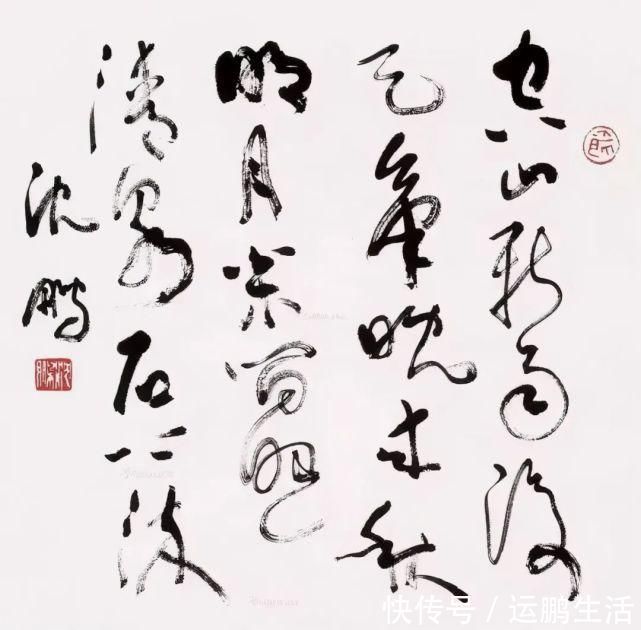 空山新雨後
天氣晚來秋
明月松間照
清泉石上流
沈鵬
快传号 / 运鹏生活